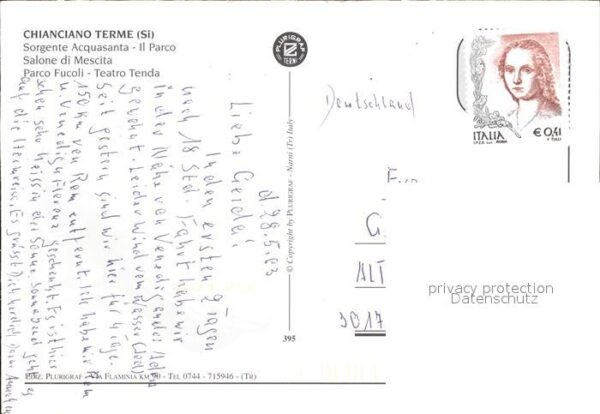 CHIANCIANO TERME (Si)
Sorgente Acquasanta - Il Parco
Salone di Mescita
Parco Fucoli - Teatro Tenda
PLURIGRAF
TERNI
ITALIA
I.P.Z.S. - ROMA
€ 0,41
Deutschland
d. 28.5.03
Liebe Gerda!
In den ersten Tagen
nach 18 Std. Fahrt haben wir
in der Nähe von Venedig an der Adria
gewohnt. Leider Wind vom Wasser
Seit gestern sind wir hier für 4 Tage.
150 km von Rom entfernt. Ich habe mir Rom
u. Venedig u. Florenz geschenkt. Es ist hier
schon sehr heiss in der Sonne. Sonnabend geht es
auf die Heimreise. Es grüsst Dich herzlich
E...
G
ALT
3017
© Copyright by PLURIGRAF - Narni (Tr) Italy
395
PLURIGRAF - VIA FLAMINIA KM 90 - TEL 0744 - 715946 - (TR)
privacy protection
Datenschutz